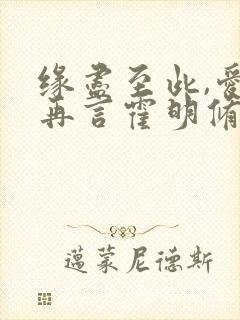 缘尽至此,爱
再言霍明脩
邁蒙尼德斯